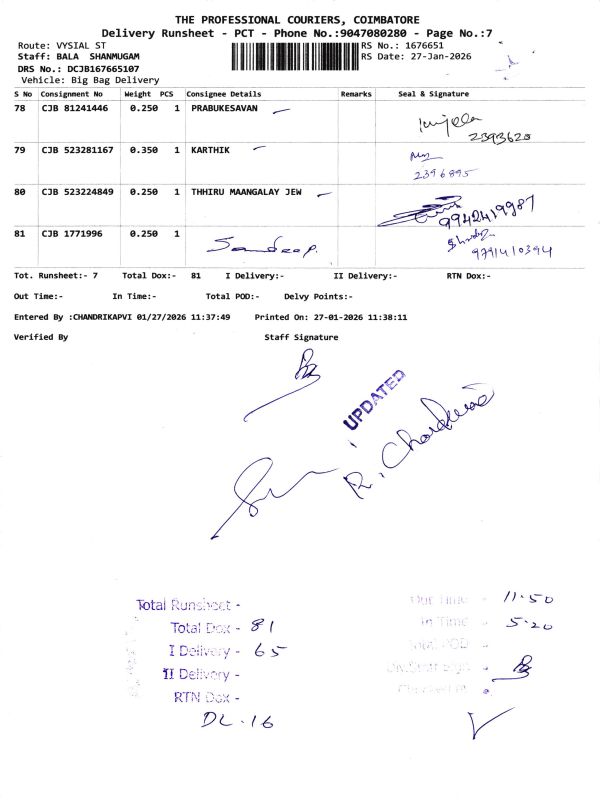 THE PROFESSIONAL COURIERS, COIMBATORE
Delivery Runsheet - PCT - Phone No.:9047080280 - Page No.:7
Route: VYSIAL ST RS No.: 1676651
Staff: BALA SHANMUGAM RS Date: 27-Jan-2026
DRS No.: DCJB167665107
Vehicle: Big Bag Delivery
S No Consignment No Weight PCS Consignee Details Remarks Seal & Signature
78 CJB 81241446 0.250 1 PRABUKESAVAN
2393620
79 CJB 523281167 0.350 1 KARTHIK
2396895
80 CJB 523224849 0.250 1 THHIRU MAANGALAY JEW
9942419987
81 CJB 1771996 0.250 1 Sandeep.
9791410394
Tot. Runsheet:- 7 Total Dox:- 81 I Delivery:- II Delivery:- RTN Dox:-
Out Time:- In Time:- Total POD:- Delvy Points:-
Entered By :CHANDRIKAPVI 01/27/2026 11:37:49 Printed On: 27-01-2026 11:38:11
Verified By Staff Signature
UPDATED
Total Runsheet -
Out Time - 11.50
Total Dox - 81
In Time - 5.20
I Delivery - 65
Total POD -
II Delivery -
RTN Dox -
DL.16